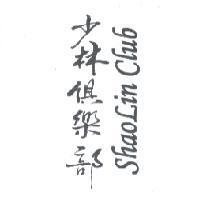 少林俱樂部
ShaoLin Club